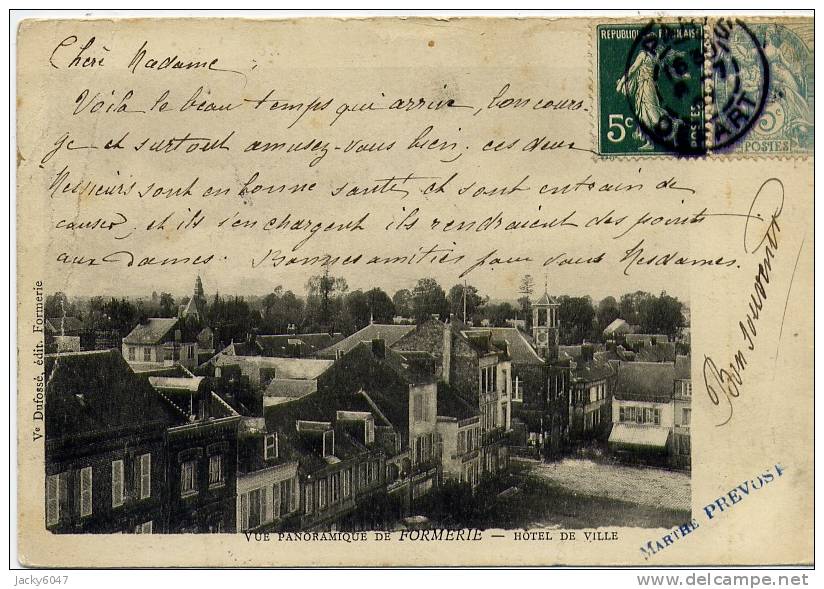 Chère Madame,
Voilà le beau temps qui arrive, bon coura-
ge et surtout amusez-vous bien, ces deux
Messieurs sont en bonne santé et sont entrain de
causer, et ils s'en chargent ils rendraient des points
aux Dames. Bonnes amitiés pour vous Mesdames.
Bon souvenir
REPUBLIQUE FRANÇAISE
5c
POSTES
5c
POSTES
DEPART
Ve Dufossé, édit. Formerie
VUE PANORAMIQUE DE FORMERIE — HÔTEL DE VILLE
MARTHE PREVOST
jacky6047
http://www.delcampe.net